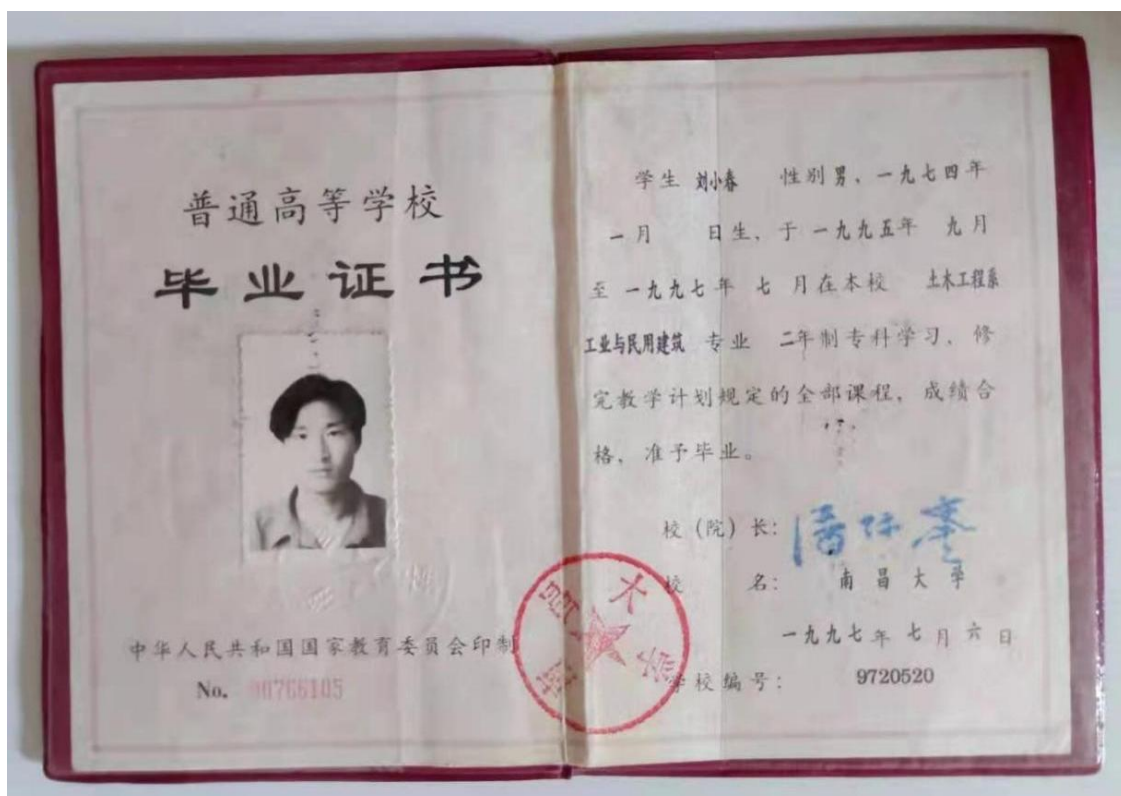 普通高等学校
毕业证书
中华人民共和国国家教育委员会印制
No. 00766105
学生 刘小春 性别 男、一九七四年
一月 日生、于一九九五年 九月
至 一九九七年 七 月在本校 土木工程系
工业与民用建筑 专业 二年制专科学习，修
完教学计划规定的全部课程，成绩合
格，准予毕业。
校（院）长：
校 名： 南昌大学
一九九七年七月六日
学校编号： 9720520
南昌大学